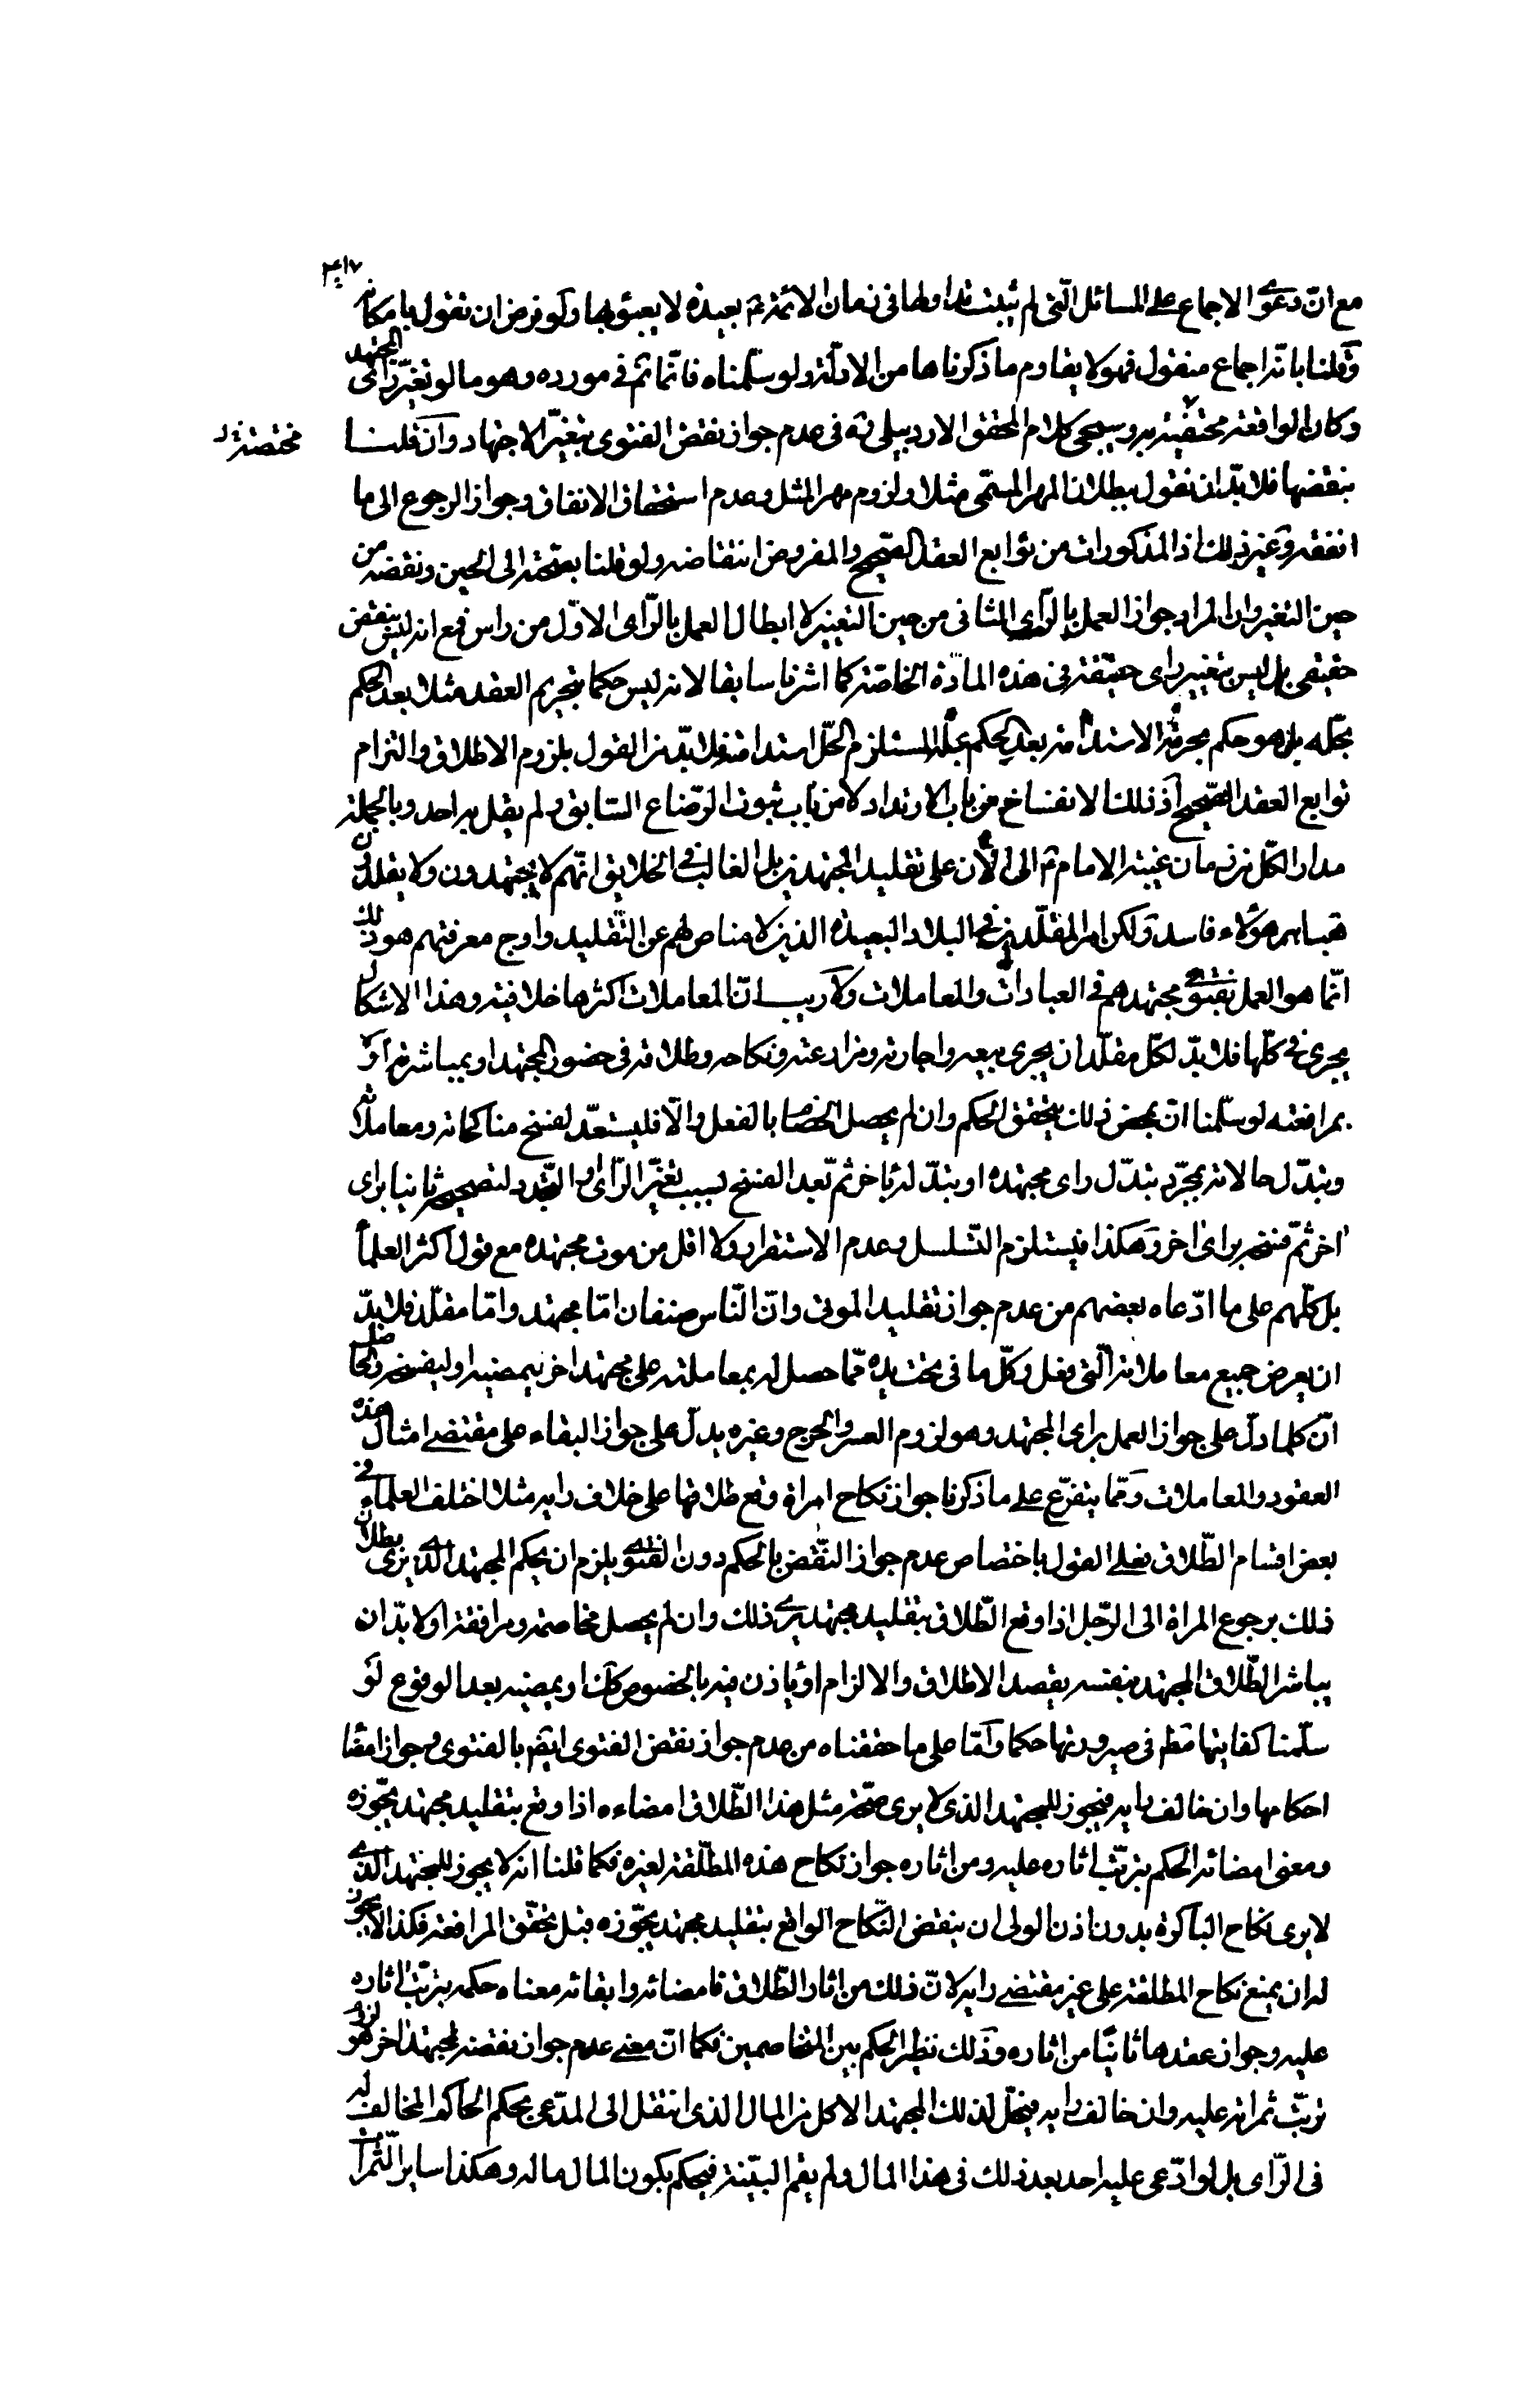 ٣١٧
مع انّ دعوى الاجماع على المسائل التى لم يثبت تداولها فى زمان الائمّة ع بعيدة لا يعبؤ بها ولو فرض ان نقول بامكانه
وقلنا بانّه اجماع منقول فهو لا يقاوم ما ذكرناها من الادلّة ولو سلّمناه فانّما ثم فى مورده وهو ما لو تغيّر راى المجتهد
وكان الواقعة مختصّة به وسيجى كلام المحقق الاردبيلى ره فى عدم جواز نقض الفتوى بتغيّر الاجتهاد وان قلنا
مختصة
بنقضها فلا بدّ ان نقول ببطلان المهر المسمّى مثلا ولزوم مهر المثل وعدم استحقاق الانفاق وجواز الرجوع الى ما
انفقه وغير ذلك اذ المذكورات من توابع العقد الصّحيح والمفروض انتقاضه ولو قلنا بصحّته الى الحين ونقضه من
حين التغير وان المراد جواز العمل بالرّاى الثانى من حين التغيير لا ابطال العمل بالرّاى الاوّل من راس فمع انه ليس بنقض
حقيقى بل ليس بتغيير راى حقيقة فى هذه المادّة الخاصّة كما اشرنا سابقا لانه ليس حكما بتحريم العقد مثلا بعد الحكم
بحلّه بل هو حكم بحرمة الاستدامة بعد الحكم بحلّه المستلزم لحلّ استدامته فلا بدّ من القول بلزوم الاطلاق والتزام
توابع العقد الصّحيح اذ ذلك الانفساخ من باب الارتداد لا من باب ثبوت الرّضاع السّابق ولم يقل به احد وبالجملة
مدار الكلّ من زمان غيبة الامام ع الى الآن على تقليد المجتهدين بل الغالب فى الخلايق انّهم لا يجتهدون ولا يقلدون
فساير هؤلاء فاسد ولكن امر المقلّدين فى البلاد البعيدة الذين لا مناص لهم عن التّقليد واوج معرفتهم هو ذلك
انّما هو العمل بفتوى مجتهدهم فى العبادات والمعاملات ولا ريب انّ المعاملات اكثرها خلافية وهذا الاشكال
يجرى فى كلّها فلا بدّ لكلّ مقلّد ان يجرى بيعه واجارته ومزارعته ونكاحه وطلاقه فى حضور المجتهد او بمباشرته او
بمرافعته لو سلّمنا انّ بمحض ذلك يتحقق الحكم وان لم يحصل الخصام بالفعل والّا فليستعدّ لفسخ مناكحاته ومعاملاته
وتبدّل حالاته بمجرّد تبدّل راى مجتهده او تبدّله باخر ثم بعد الفسخ بسبب تغيّر الرّاى والتّجدد لتصحيحه ثانيا براى
اخر ثمّ فسخه براى اخر وهكذا فيستلزم التّسلسل وعدم الاستقرار ولا اقل من موت مجتهده مع قول اكثر العلماء
بل كلّهم على ما ادّعاه بعضهم من عدم جواز تقليد الموتى وانّ النّاس صنفان امّا مجتهد وامّا مقلّد فلا بدّ
ان يعرض جميع معاملاته الّتى فعل وكلّ ما فى تحت يده ممّا حصل له بمعاملته على مجتهد اخر ليمضيه او ليفسخه والحاصل
انّ كلما دلّ على جواز العمل براى المجتهد وهو لزوم العسر والحرج وغيره يدلّ على جواز البقاء على مقتضى امثال هذه
العقود والمعاملات وممّا يتفرّع على ما ذكرنا جواز نكاح امراة وقع طلاقها على خلاف رايه مثلا اختلف العلماء فى
بعض اقسام الطّلاق فعلى القول باختصاص عدم جواز النّقض بالحكم دون الفتوى يلزم ان يحكم المجتهد الذى يرى بطلان
ذلك برجوع المراة الى الرّجل اذا وقع الطّلاق بتقليد مجتهد يرى ذلك وان لم يحصل مخاصمة ومرافعة او لا بدّ ان
يباشر الطّلاق المجتهد بنفسه بقصد الاطلاق والالزام او ياذن فيه بالخصوص كك او يمضيه بعد الوقوع لو
سلّمنا كفايتها فى صيرورتها حكما وامّا على ما حققناه من عدم جواز نقض الفتوى ايضم بالفتوى وجواز امضاء
احكامها وان خالف رايه فيجوز للمجتهد الذى لا يرى صحّة مثل هذا الطّلاق امضاءه اذا وقع بتقليد مجتهد يجوّزه
ومعنى امضائه الحكم بترتّب اثاره عليه ومن اثاره جواز نكاح هذه المطلّقة لغيره فكما قلنا انه لا يجوز للمجتهد الذى
لا يرى نكاح الباكرة بدون اذن الولى ان ينقض النّكاح الواقع بتقليد مجتهد يجوّزه قبل تحقّق المرافعة فكذا لا يجوز
له ان يمنع نكاح المطلقة على غير مقتضى رايه لانّ ذلك من اثار الطّلاق فامضائه وابقائه معناه حكمه بترتّب اثاره
عليه وجواز عقدها ثانيا من اثاره وذلك نظير الحكم بين المتخاصمين فكما انّ معنى عدم جواز نقضه لمجتهد اخر هو لزوم
ترتّب ثمراته عليه وان خالف رايه فيحلّ لذلك المجتهد الاكل من المال الذى انتقل الى المدّعى بحكم الحاكم المخالف له
فى الرّاى بل لو ادّعى عليه احد بعد ذلك فى هذا المال ولم يقم البيّنة فيحكم بكون المال ماله وهكذا ساير الثّمرات